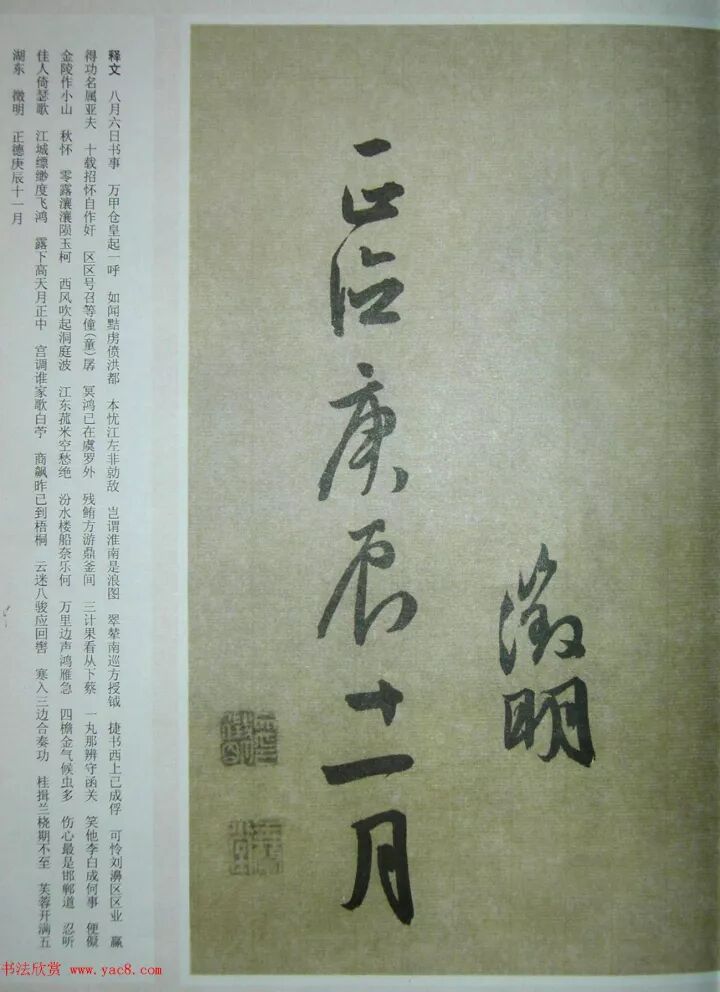 微明
正德庚辰十一月
释文 八月六日书事 万甲仓皇起一呼 如闻黠虏偾洪都 本忧江左非勍敌 岂谓淮南是浪图 翠辇南巡方授钺 捷书西上已成俘 可怜刘濞区区业 赢
得功名属亚夫 十载招怀自作奸 区区号召等僮(童)孱 冥鸿已在虞罗外 残鲔方游鼎釜间 三计果看从下蔡 一丸那辨守函关 笑他李白成何事 便儗
金陵作小山 秋怀 零露瀼瀼陨玉柯 西风吹起洞庭波 江东菰米空愁绝 汾水楼船奈乐何 万里边声鸿雁急 四檐金气候虫多 伤心最是邯郸道 忍听
佳人倚瑟歌 江城缥缈度飞鸿 露下高天月正中 宫调谁家歌白苧 商飙昨已到梧桐 云迷八骏应回辔 寒入三边合奏功 桂揖兰桡期不至 芙蓉开满五
湖东 徵明 正德庚辰十一月
书法欣赏 www.yac8.com